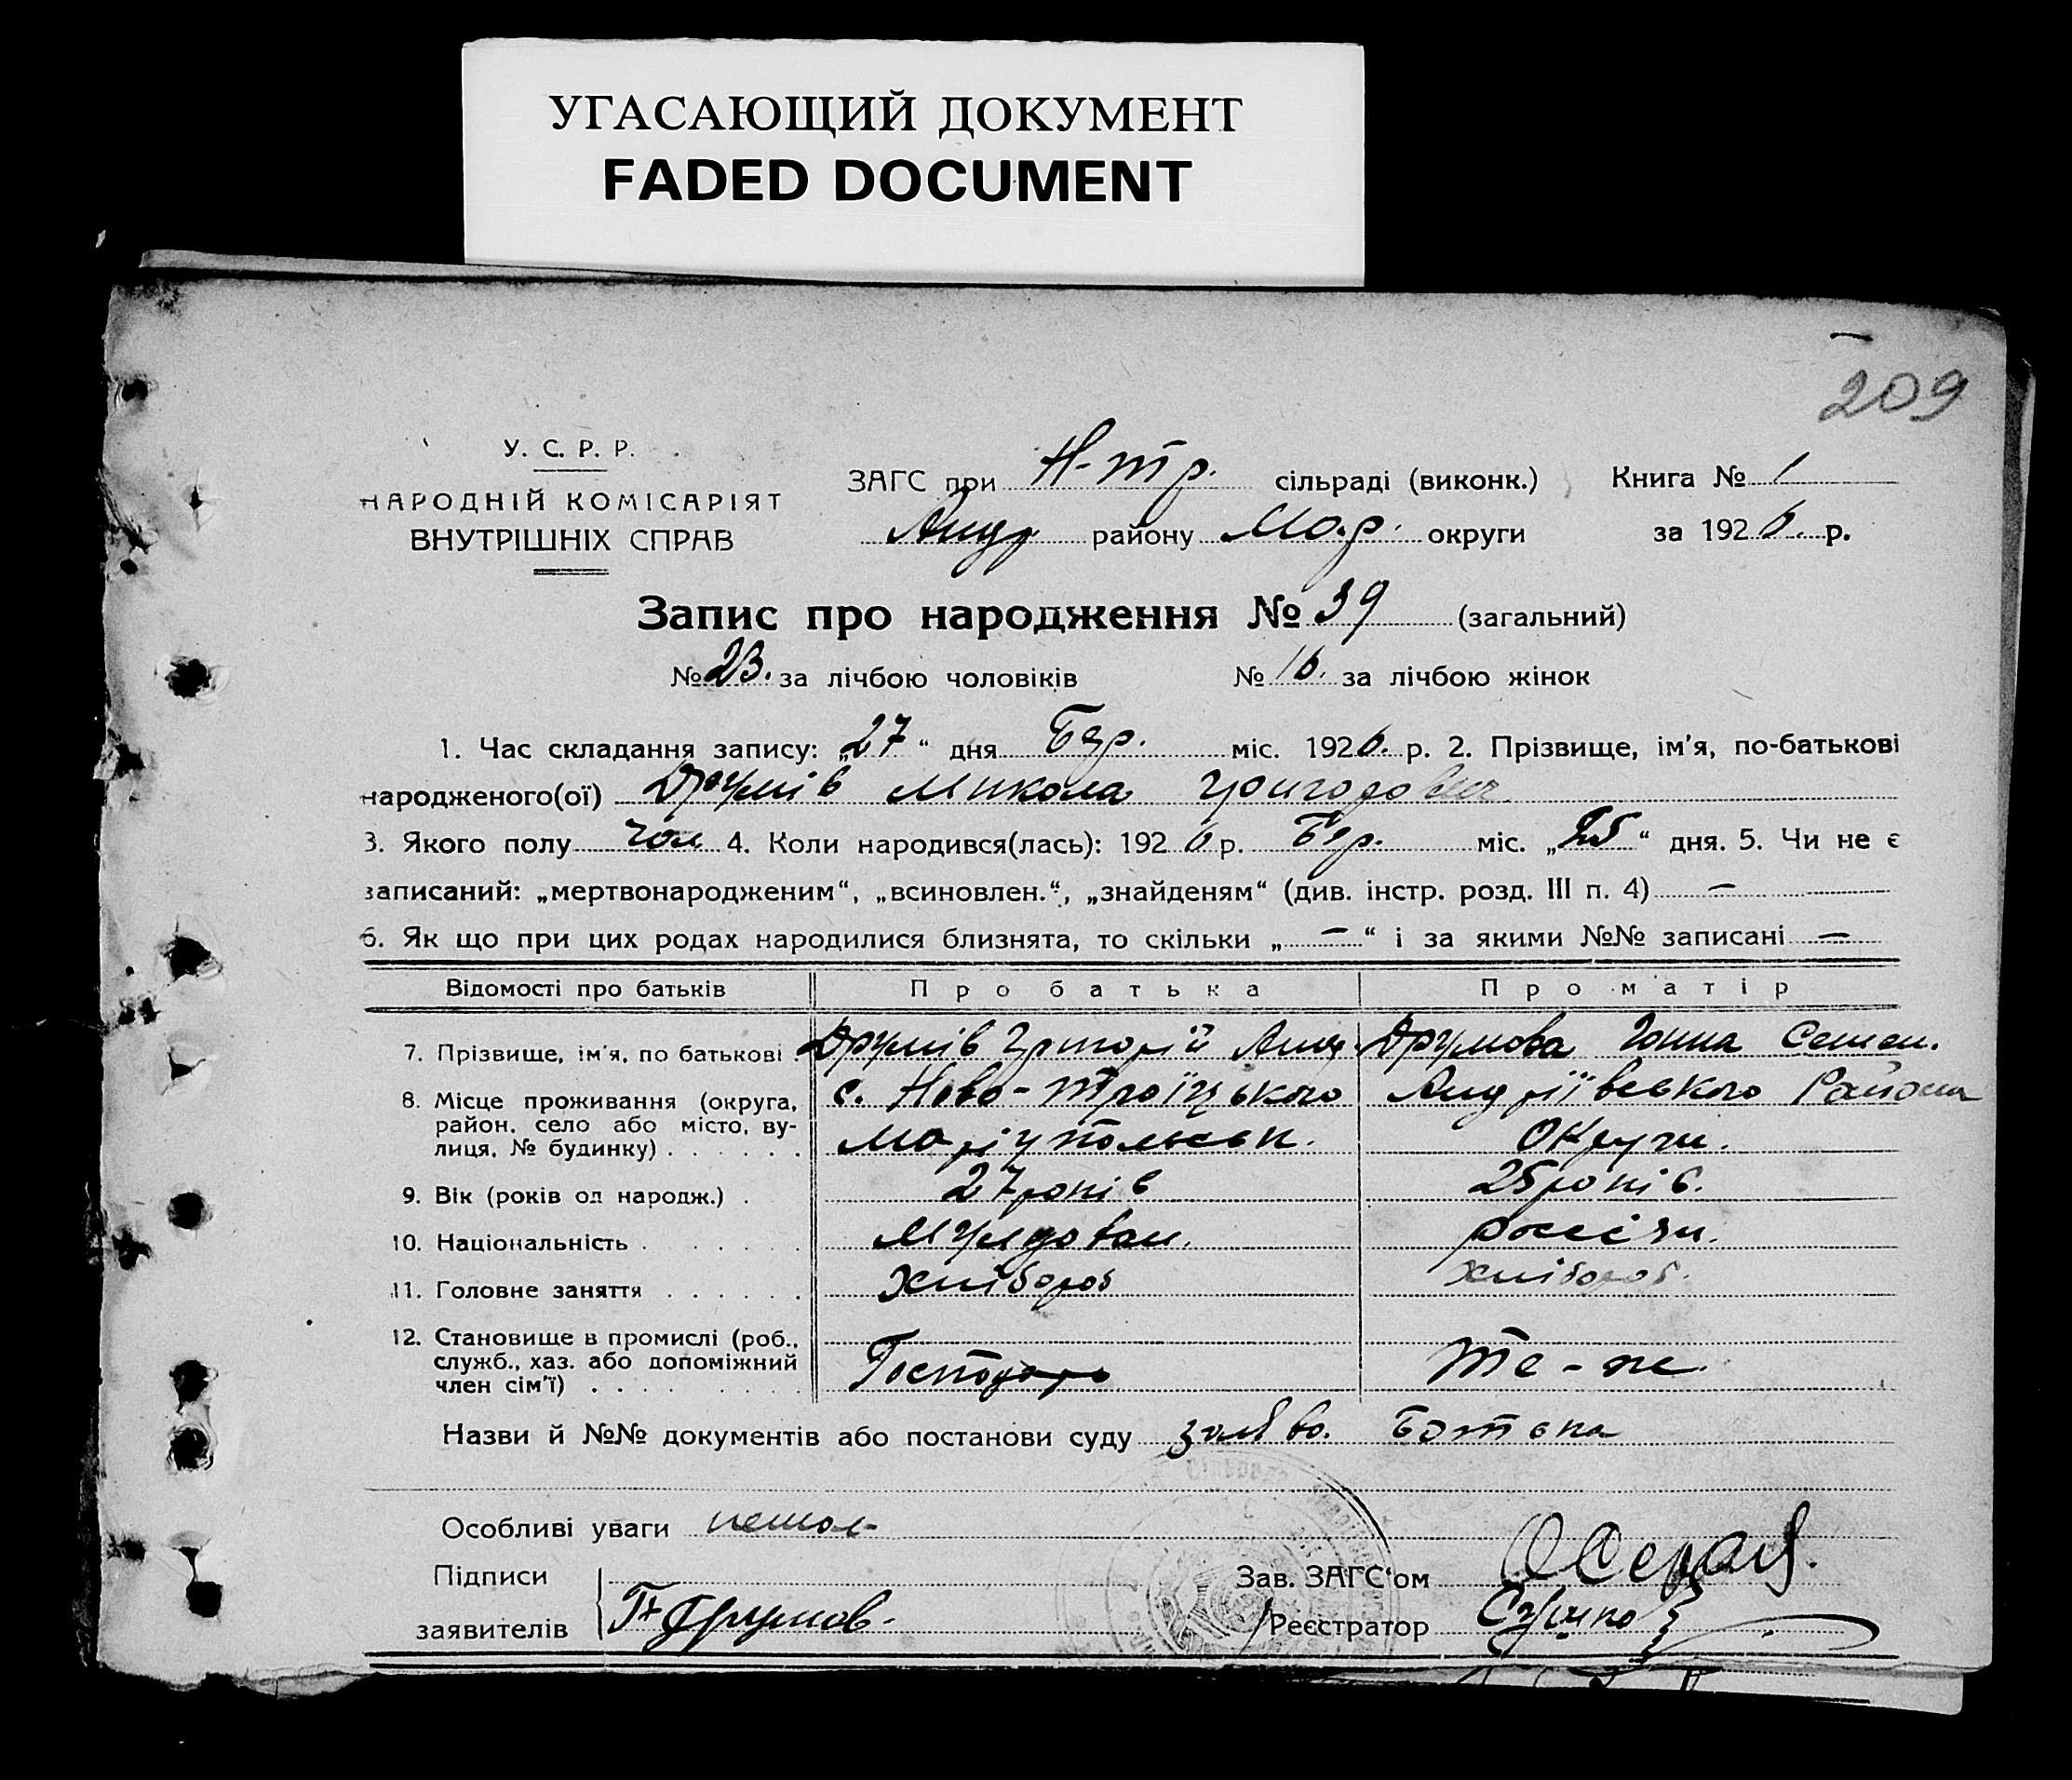 УГАСАЮЩИЙ ДОКУМЕНТ
FADED DOCUMENT
209
У. С. Р. Р.
НАРОДНІЙ КОМІСАРІЯТ
ВНУТРІШНІХ СПРАВ
ЗАГС при Н-Тр. сільраді (виконк.) Книга № 1
Андр району Мар. округи за 1926. р.
Запис про народження № 39 (загальний)
№ 23. за лічбою чоловіків № 16. за лічбою жінок
1. Час складання запису: „27“ дня Бер. міс. 1926. р. 2. Прізвище, ім'я, по-батькові
народженого(ої) Друмів Микола Григорович
3. Якого полу чол 4. Коли народився(лась): 1926 р. Бер. міс. „25“ дня. 5. Чи не є
записаний: „мертвонародженим“, „всиновлен.“, „знайденям“ (див. інстр. розд. III п. 4) —
6. Як що при цих родах народилися близнята, то скільки „—“ і за якими №№ записані —
Відомості про батьків Про батька Про матір
7. Прізвище, ім'я, по батькові . Друмів Григорій Анд. Друмова Ганна Семен.
8. Місце проживання (округа, с. Ново-Троїцького Андріївського Району
район, село або місто, ву-
лиця, № будинку) . . . . . . Маріупольськ. Округи.
9. Вік (років од народж.) . 27 років 25 років.
10. Національність . . . . . Мулдован. росіян.
11. Головне заняття . . . . . . Хлібороб хлібороб.
12. Становище в промислі (роб.,
служб., хаз. або допоміжний Господарь Те-же
член сім'ї) . . . . . . .
Назви й №№ документів або постанови суду заява. Батька
Особливі уваги немає
Підписи Зав. ЗАГС'ом
заявителів Г Друмов. Реєстратор